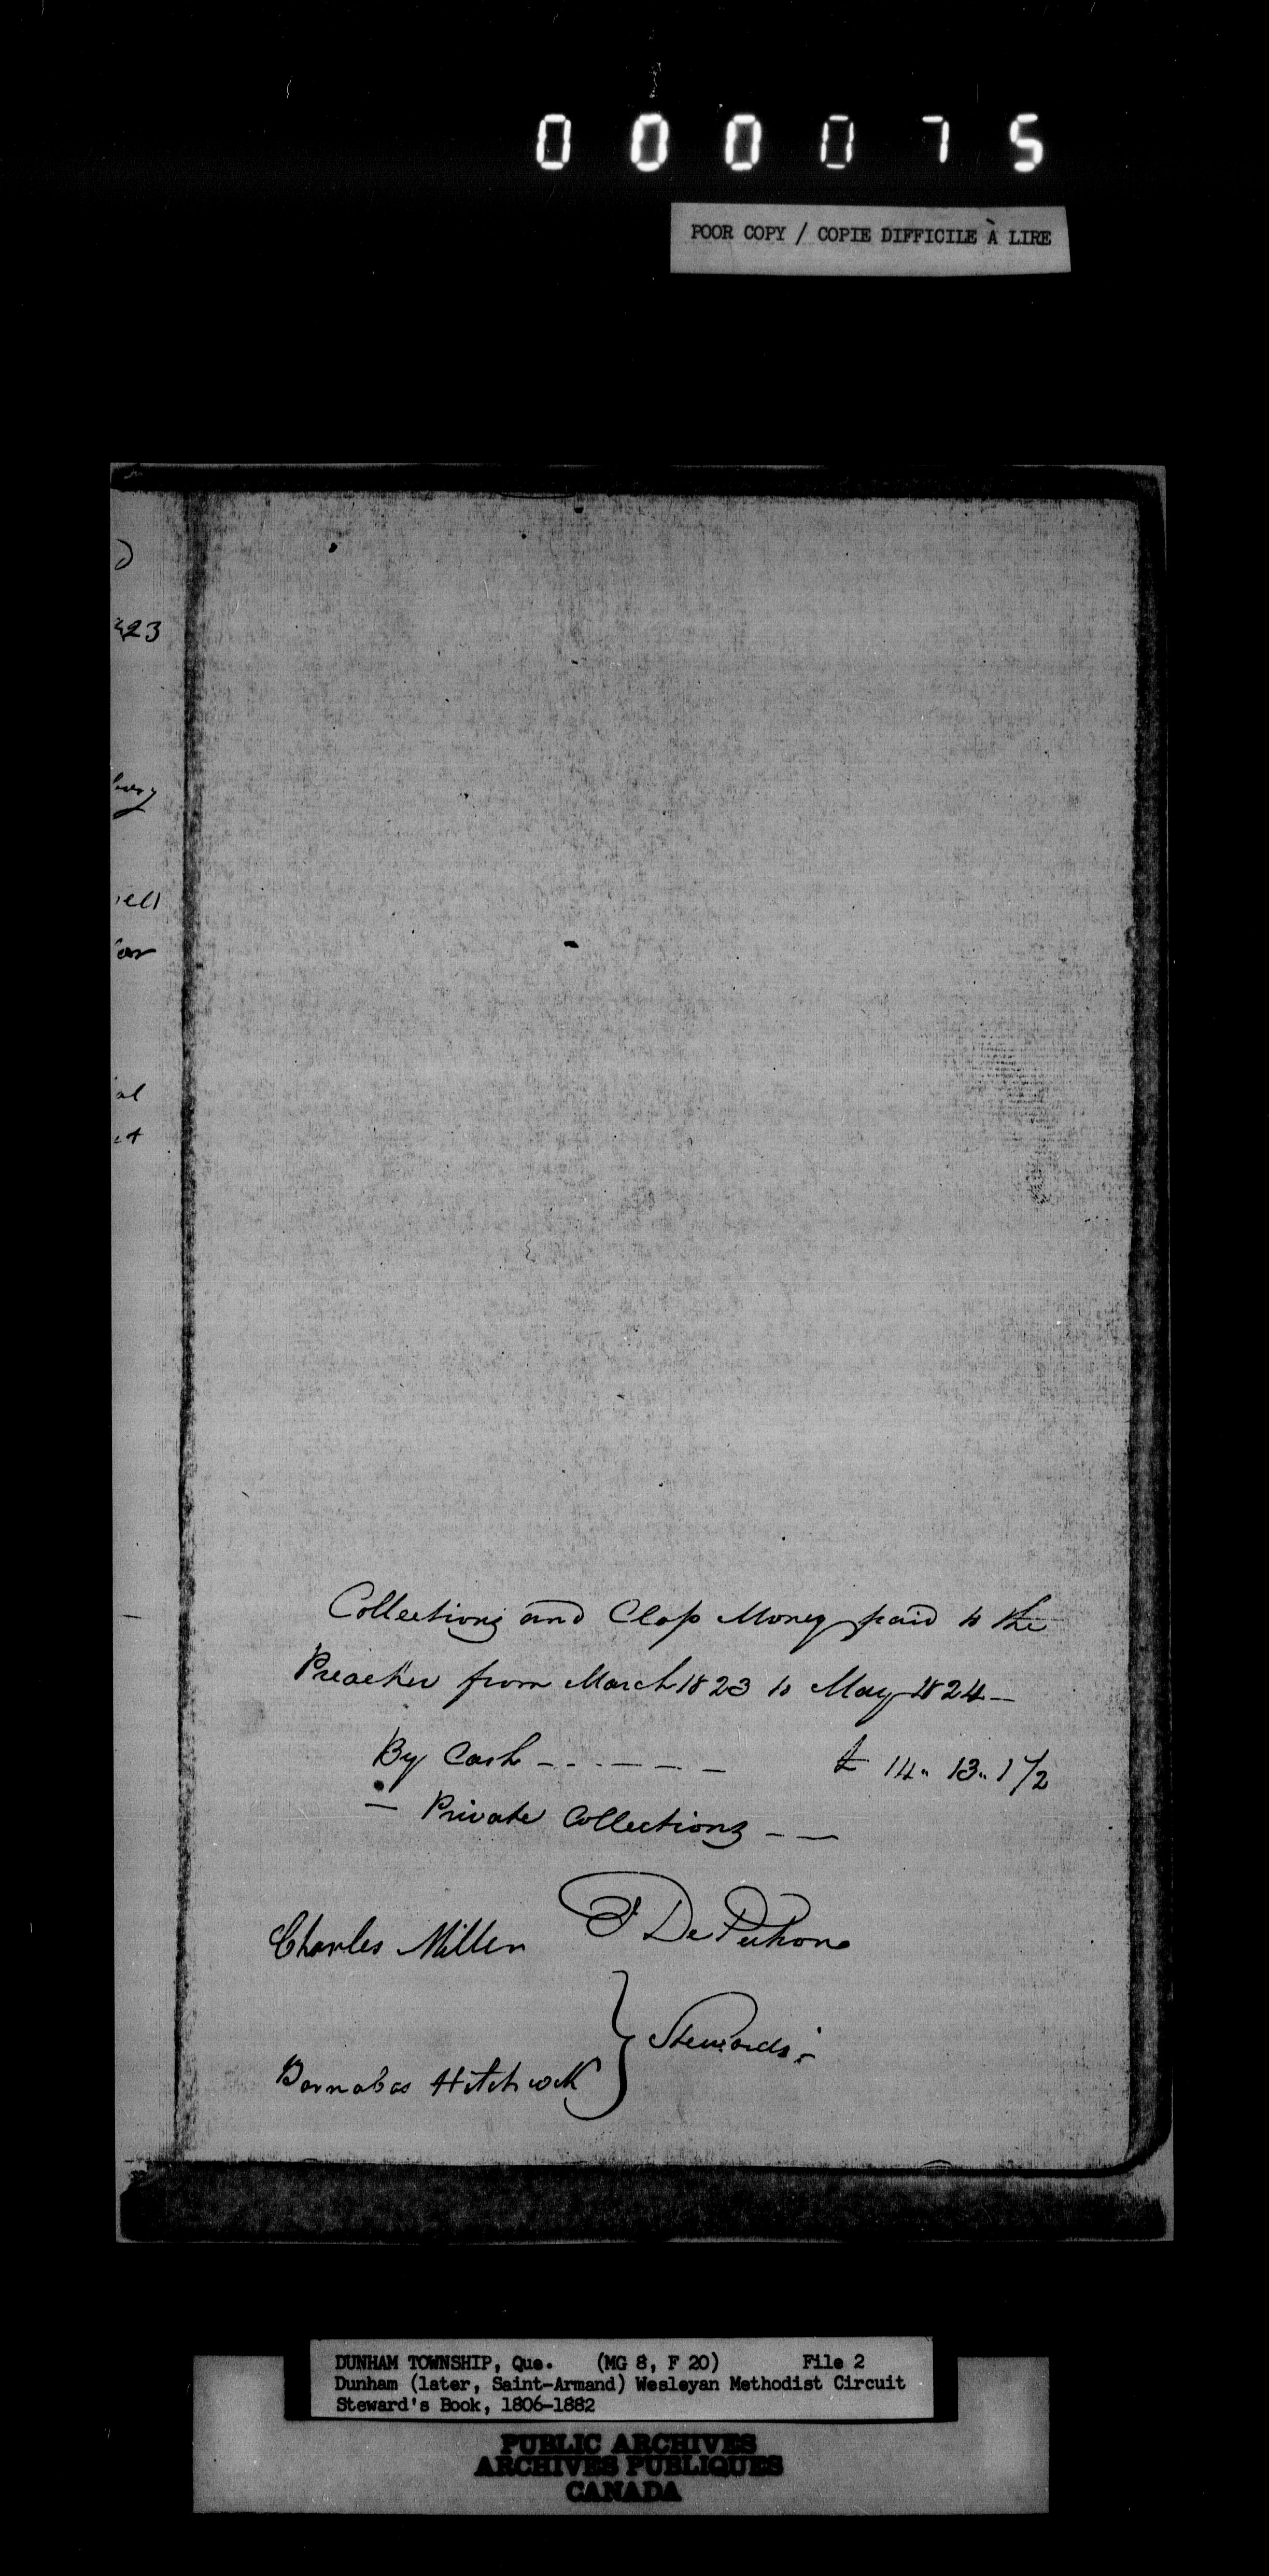 000075
POOR COPY / COPIE DIFFICILE À LIRE
23
ell
Collections and Class Money paid to the
Preacher from March 1823 to May 1824—
By Cash - - - - - - £ 14.. 13.. 1 1/2
— Private Collections - —
Charles Miller
Stewards
Barnabas Hitchcock
DUNHAM TOWNSHIP, Que. (MG 8, F 20) File 2
Dunham (later, Saint-Armand) Wesleyan Methodist Circuit
Steward's Book, 1806-1882
PUBLIC ARCHIVES
ARCHIVES PUBLIQUES
CANADA